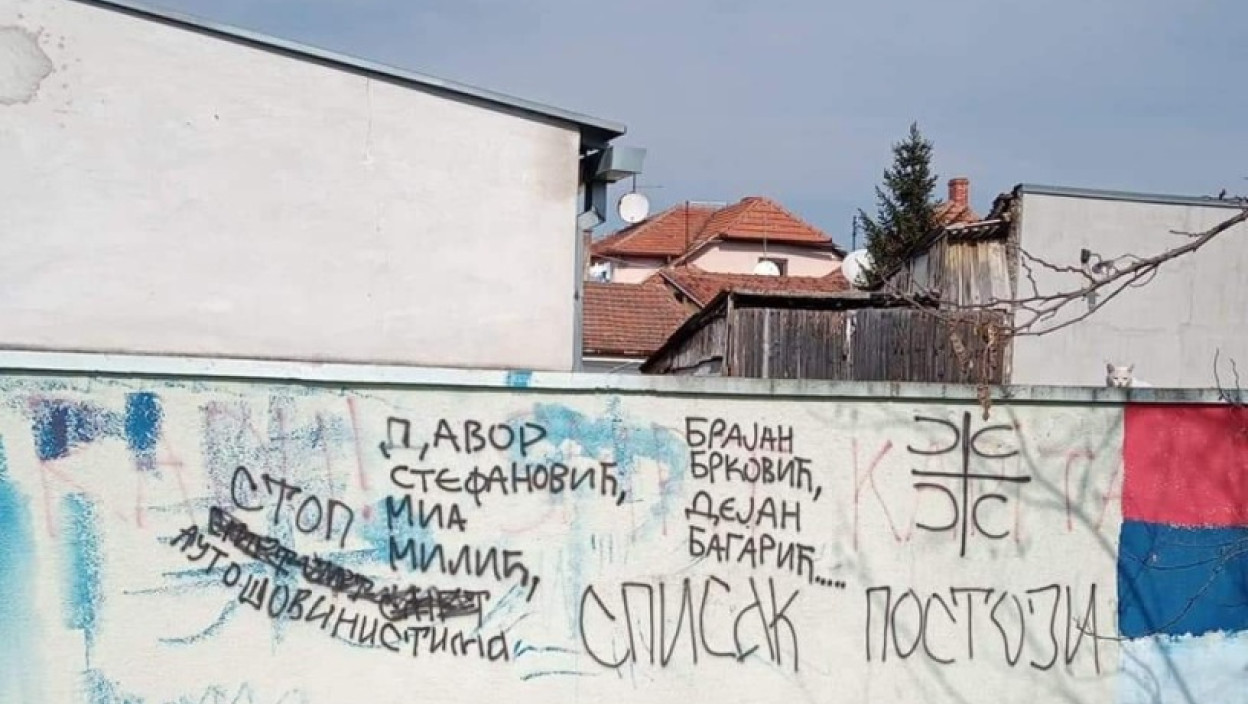 СТОП
АУТОШОВИНИСТИМА
Д,АВОР
СТЕФАНОВИЋ,
МИА
МИЛИЋ,
БРАЈАН
БРКОВИЋ,
ДЕЈАН
БАГАРИЋ.....
СПИСАК ПОСТОЈИ